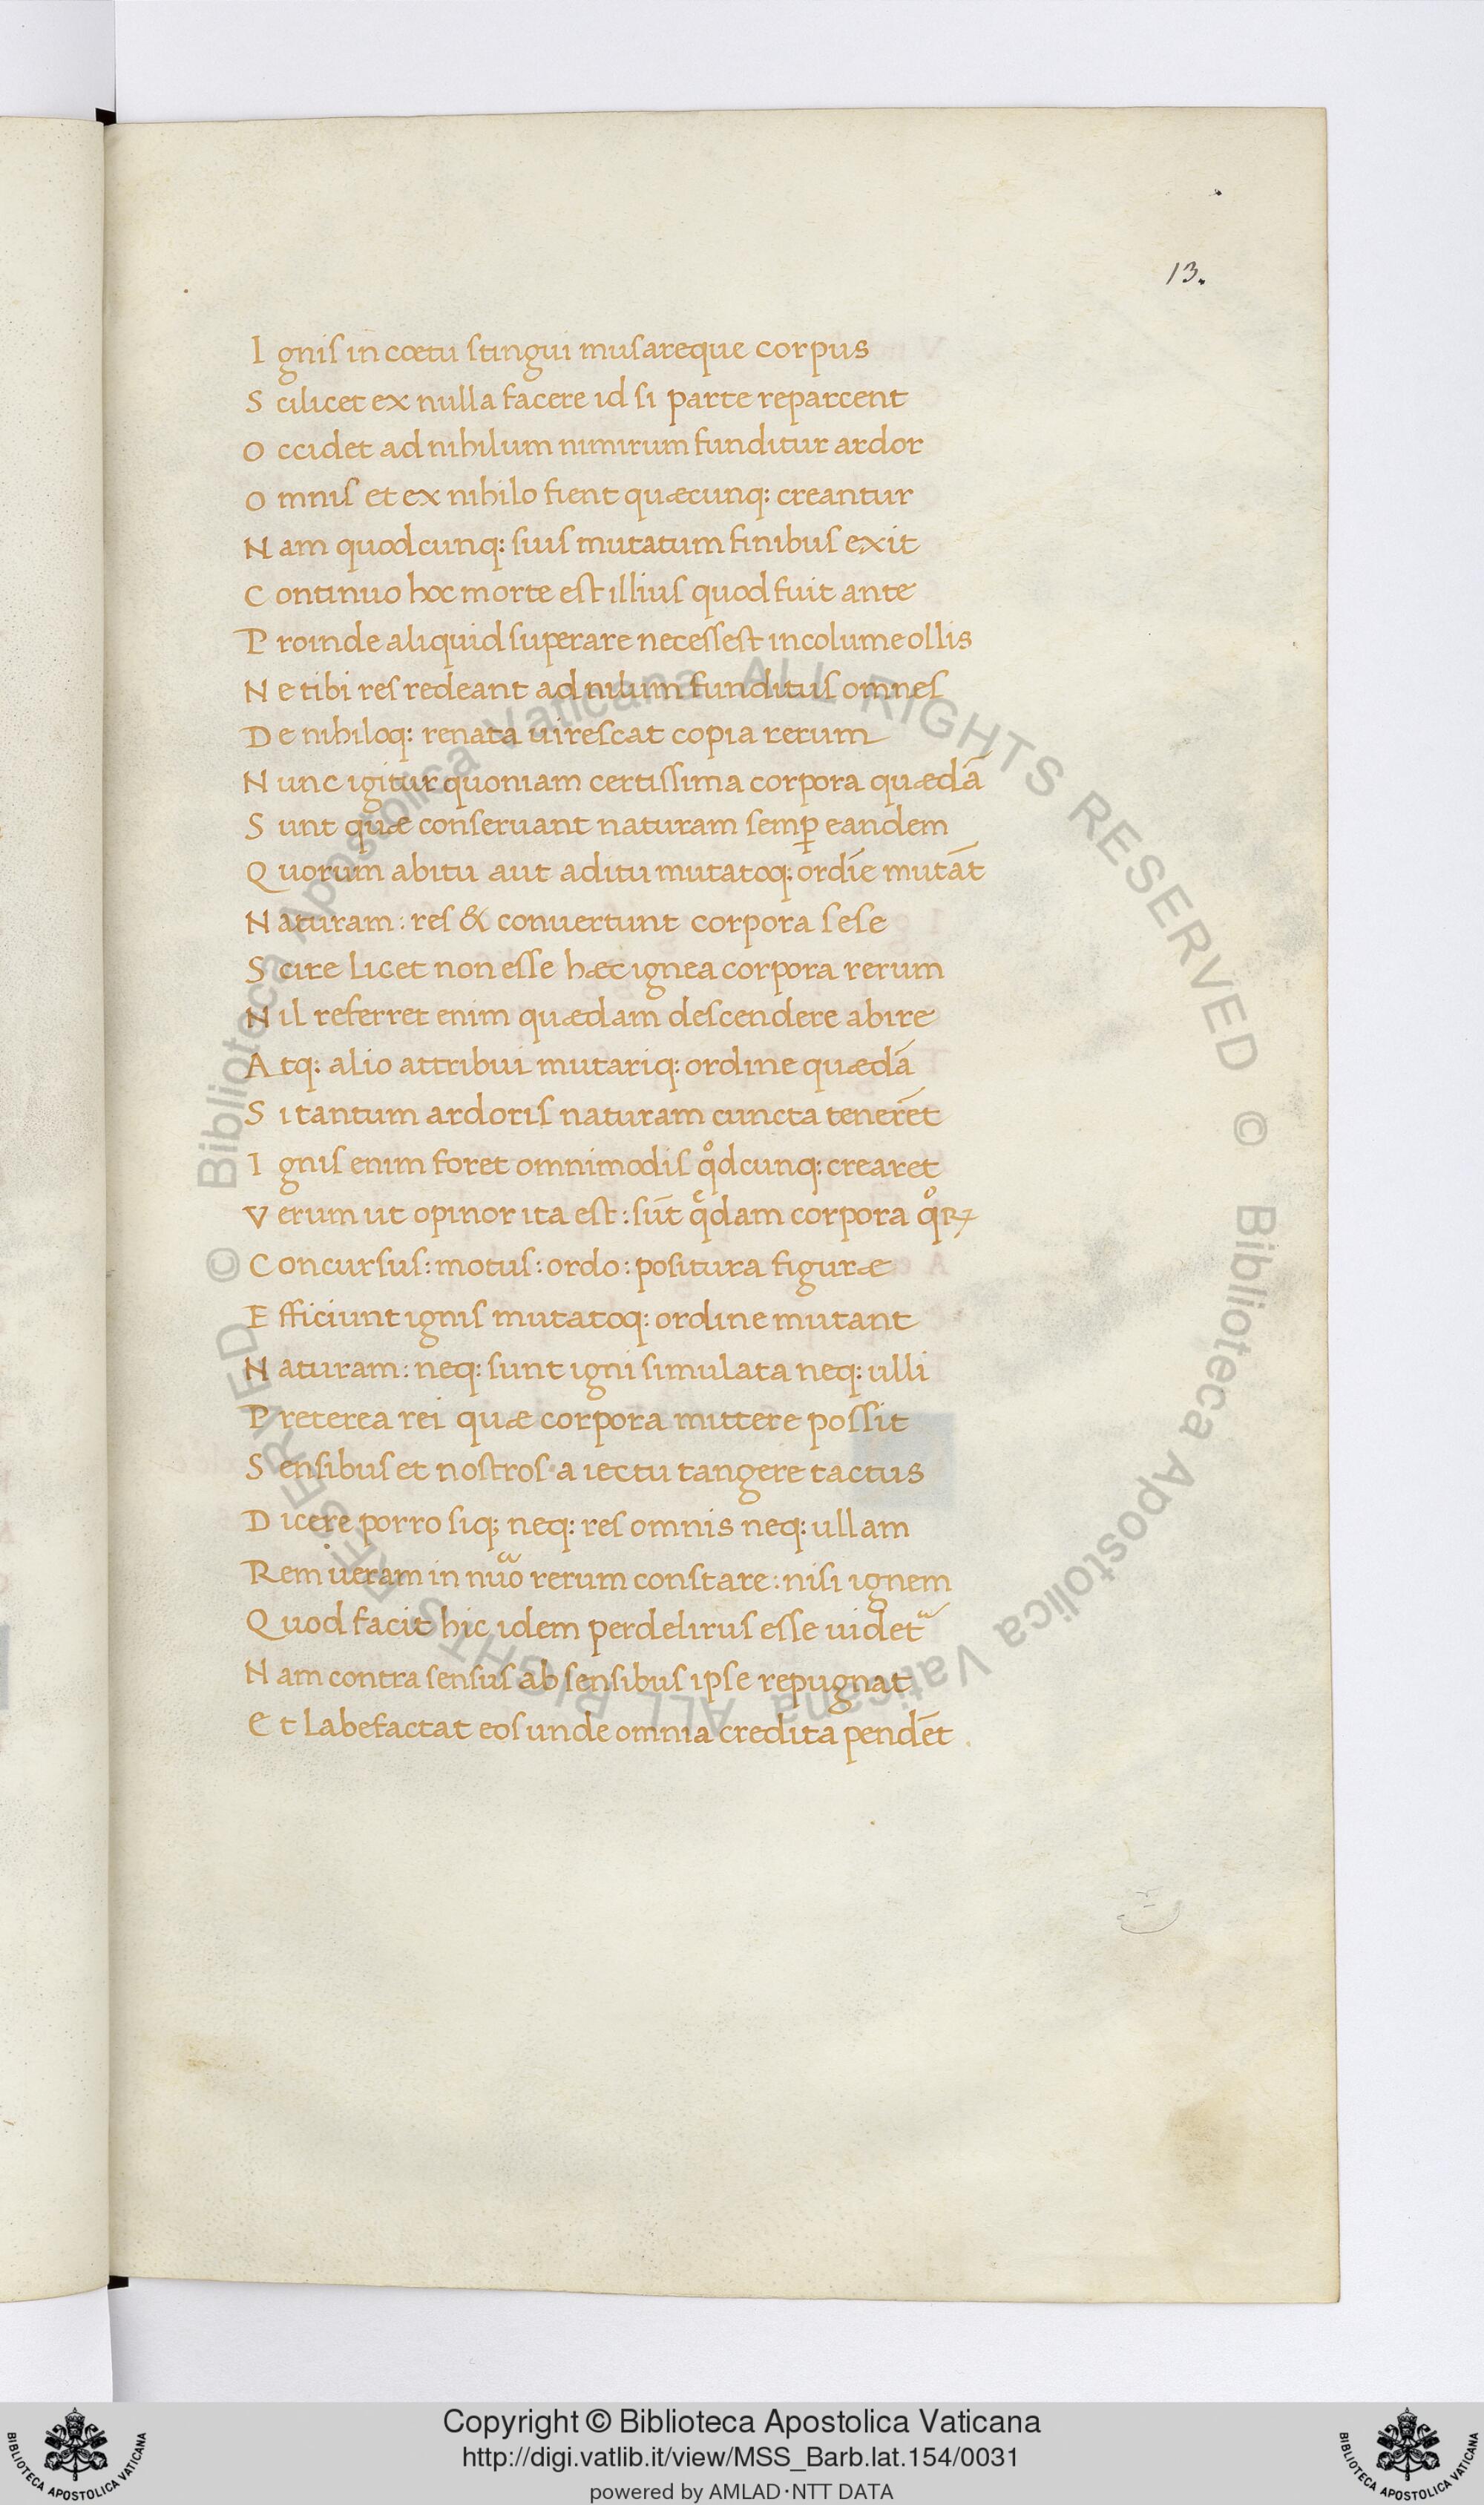 13.
I gnis in cœtu stingui musareque corpus
S cilicet ex nulla facere id si parte reparcent
O ccidet ad nihilum nimirum funditur ardor
O mnis et ex nihilo fient quæcunq: creantur
N am quodcunq: suis mutatum finibus exit
C ontinuo hoc morte est illius quod fuit ante
P roinde aliquid superare necessest incolume ollis
N e tibi res redeant ad nilum funditus omnes
D e nihiloq: renata uirescat copia rerum
N unc igitur quoniam certissima corpora quædā
S unt quæ conseruant naturam semꝑ eandem
Q uorum abitu aut aditu mutatoq: ordīe mutāt
N aturam: res & conuertunt corpora sese
S cire licet non esse hæc ignea corpora rerum
N il referret enim quædam descendere abire
A tq: alio attribui mutariq: ordine quædā
S i tantum ardoris naturam cuncta tenerēt
I gnis enim foret omnimodis qͦdcunq: crearet
V erum ut opinor ita est: sūt qͤdam corpora qͦꝝ
C oncursus: motus: ordo: positura figuræ
E fficiunt ignis mutatoq: ordine mutant
N aturam: neq: sunt igni simulata neq: ulli
P reterea rei quæ corpora mittere possit
S ensibus et nostros a iectu tangere tactus
D icere porro siq; neq: res omnis neq: ullam
R em ueram in nuͣo rerum constare: nisi ignem
Q uod facit hic idem perdelirus esse uidetᷓ
N am contra sensus ab sensibus ipse repugnat
E t labefactat eos unde omnia credita pendēt
© Biblioteca Apostolica Vaticana ALL RIGHTS RESERVED © Biblioteca Apostolica Vaticana ALL RIGHTS RESERVED
Copyright © Biblioteca Apostolica Vaticana
http://digi.vatlib.it/view/MSS_Barb.lat.154/0031
powered by AMLAD·NTT DATA
BIBLIOTECA APOSTOLICA VATICANA
BIBLIOTECA APOSTOLICA VATICANA